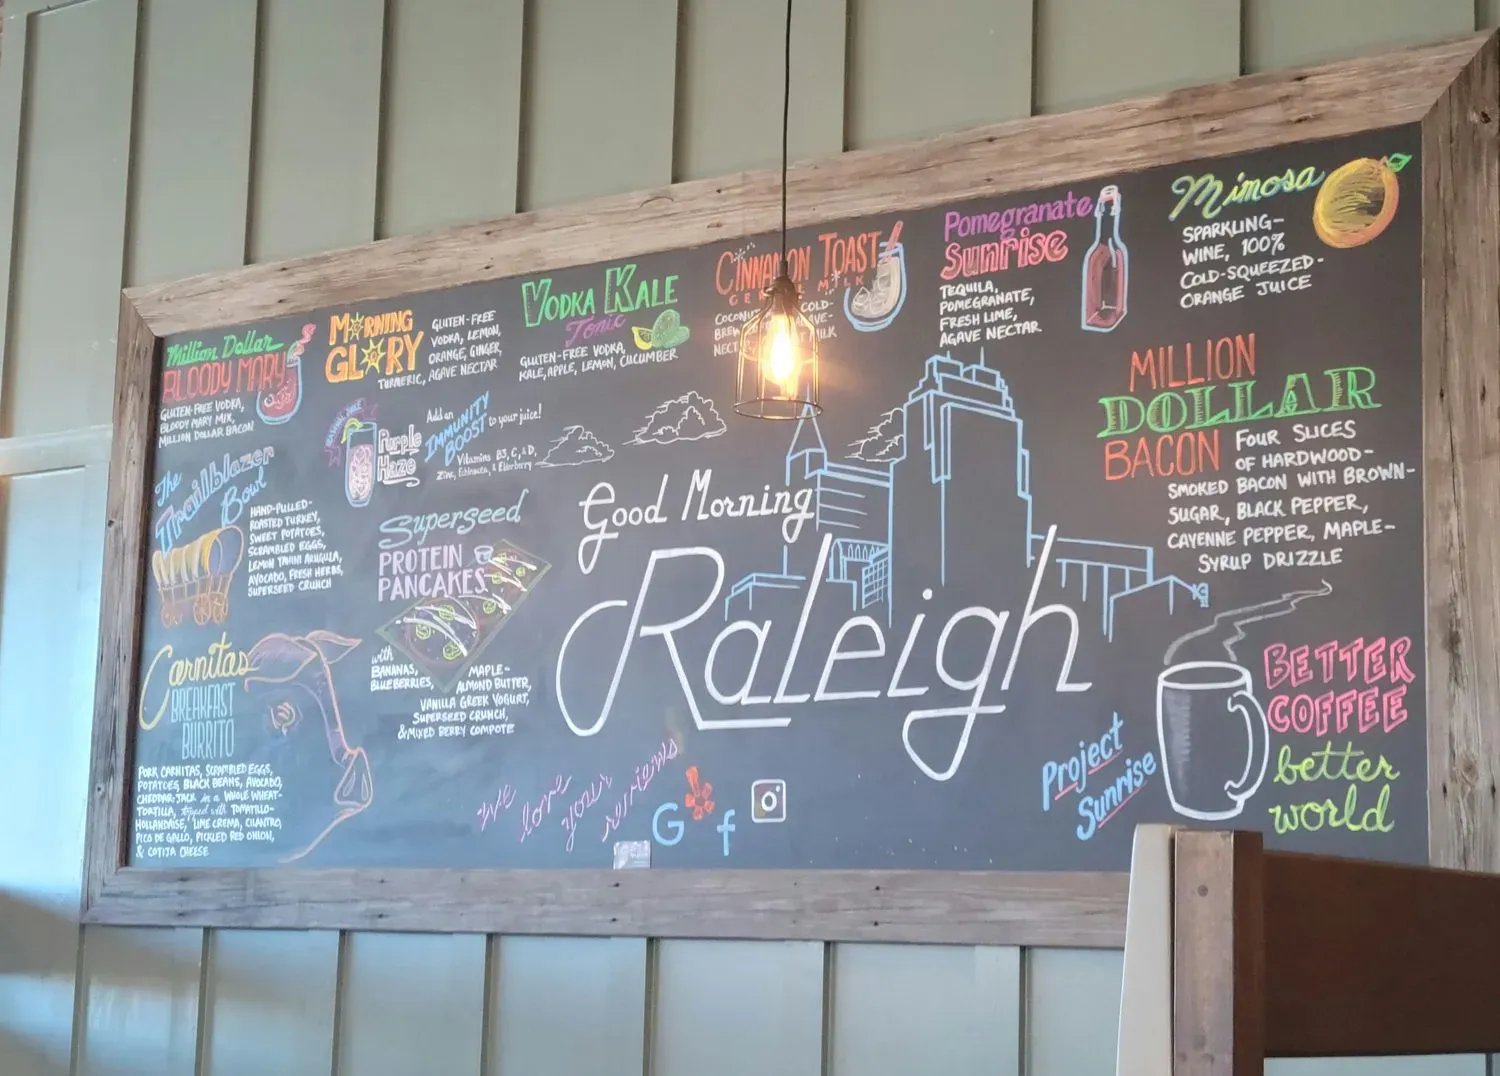 Million Dollar
BLOODY MARY
GLUTEN-FREE VODKA,
BLOODY MARY MIX,
MILLION DOLLAR BACON
MORNING
GLORY
GLUTEN-FREE
VODKA, LEMON,
ORANGE, GINGER,
TURMERIC, AGAVE NECTAR
VODKA KALE
Tonic
GLUTEN-FREE VODKA,
KALE, APPLE, LEMON, CUCUMBER
CINNAMON TOAST
MILK
COLD-
MILK
Pomegranate
Sunrise
TEQUILA,
POMEGRANATE,
FRESH LIME,
AGAVE NECTAR
Mimosa
SPARKLING-
WINE, 100%
COLD-SQUEEZED-
ORANGE JUICE
Purple
Haze
Add an
IMMUNITY
BOOST
to your juice!
Vitamins B3, C, & D,
Zinc, Echinacea, & Elderberry
The
Trailblazer
Bowl
HAND-PULLED-
ROASTED TURKEY,
SWEET POTATOES,
SCRAMBLED EGGS,
LEMON TAHINI ARUGULA,
AVOCADO, FRESH HERBS,
SUPERSEED CRUNCH
Superseed
PROTEIN
PANCAKES
with
BANANAS,
BLUEBERRIES,
MAPLE-
ALMOND BUTTER,
VANILLA GREEK YOGURT,
SUPERSEED CRUNCH,
& MIXED BERRY COMPOTE
Carnitas
BREAKFAST
BURRITO
PORK CARNITAS, SCRAMBLED EGGS,
POTATOES, BLACK BEANS, AVOCADO,
CHEDDAR-JACK in a WHOLE WHEAT-
TORTILLA, topped with TOMATILLO-
HOLLANDAISE, LIME CREMA, CILANTRO,
PICO DE GALLO, PICKLED RED ONION,
& COTIJA CHEESE
Good Morning
Raleigh
MILLION
DOLLAR
BACON
FOUR SLICES
OF HARDWOOD-
SMOKED BACON WITH BROWN-
SUGAR, BLACK PEPPER,
CAYENNE PEPPER, MAPLE-
SYRUP DRIZZLE
we love your reviews
G f
Project
Sunrise
BETTER
COFFEE
better
world